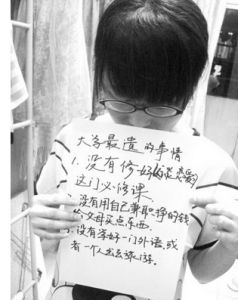 大学最遗的事情
1.没有修好恋爱
这门必修课.
没有用自己兼职挣的钱
给父母买点东西.
没有学好一门外语,或
者一个人出去旅游.